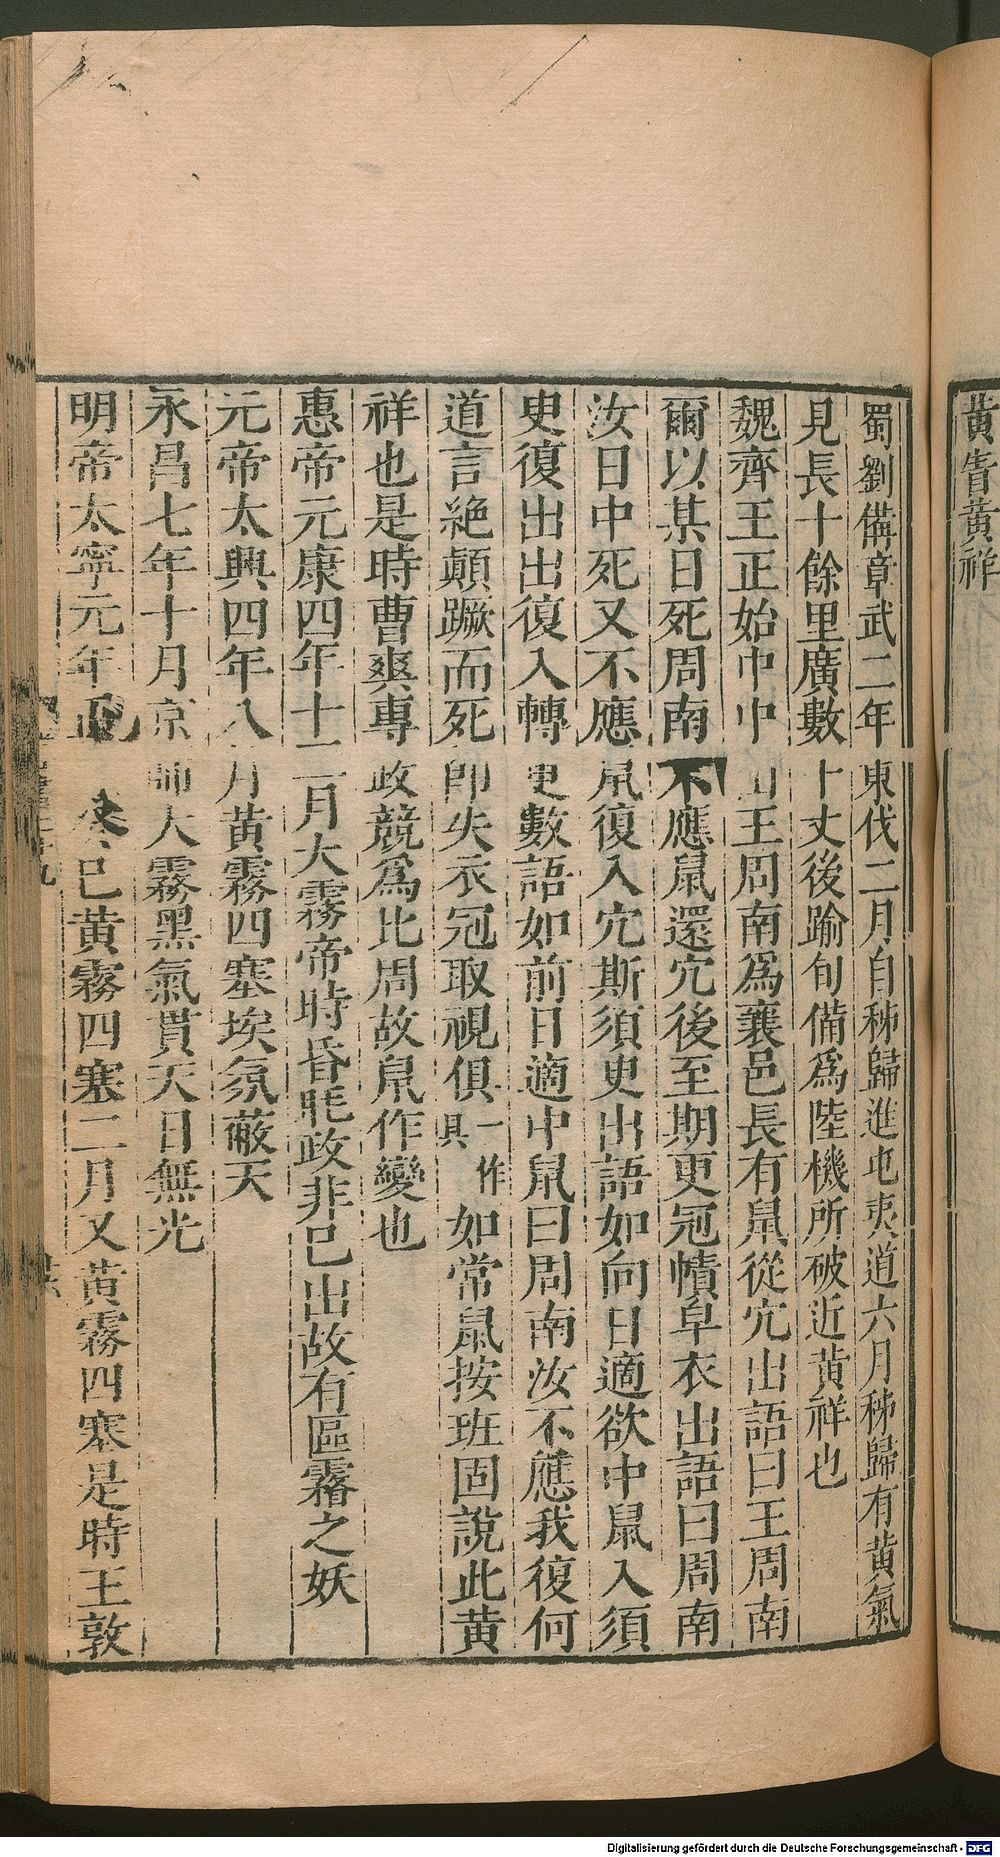 黄眚黄祥
蜀劉備章武二年東伐二月自秭歸進屯夷道六月秭歸有黄氣
見長十餘里廣數十丈後踰旬備爲陸機所破近黄祥也
魏齊王正始中中山王周南爲襄邑長有鼠從宂出語曰王周南
爾以某日死周南不應鼠還宂後至期更冠幘皁衣出語曰周南
汝日中死又不應鼠復入宂斯須更出語如向日適欲中鼠入須
史復出出復入轉更數語如前日適中鼠曰周南汝不應我復何
道言絶顛蹶而死即失衣冠取視俱一作具如常鼠按班固說此黄
祥也是時曹爽專政競爲比周故鼠作變也
惠帝元康四年十二月大霧帝時昏眊政非已出故有區霿之妖
元帝太興四年八月黄霧四塞埃氛蔽天
永昌七年十月京師大霧黑氣貫天日無光
明帝太寧元年正癸巳黄霧四塞二月又黄霧四塞是時王敦
Digitalisierung gefördert durch die Deutsche Forschungsgemeinschaft - DFG